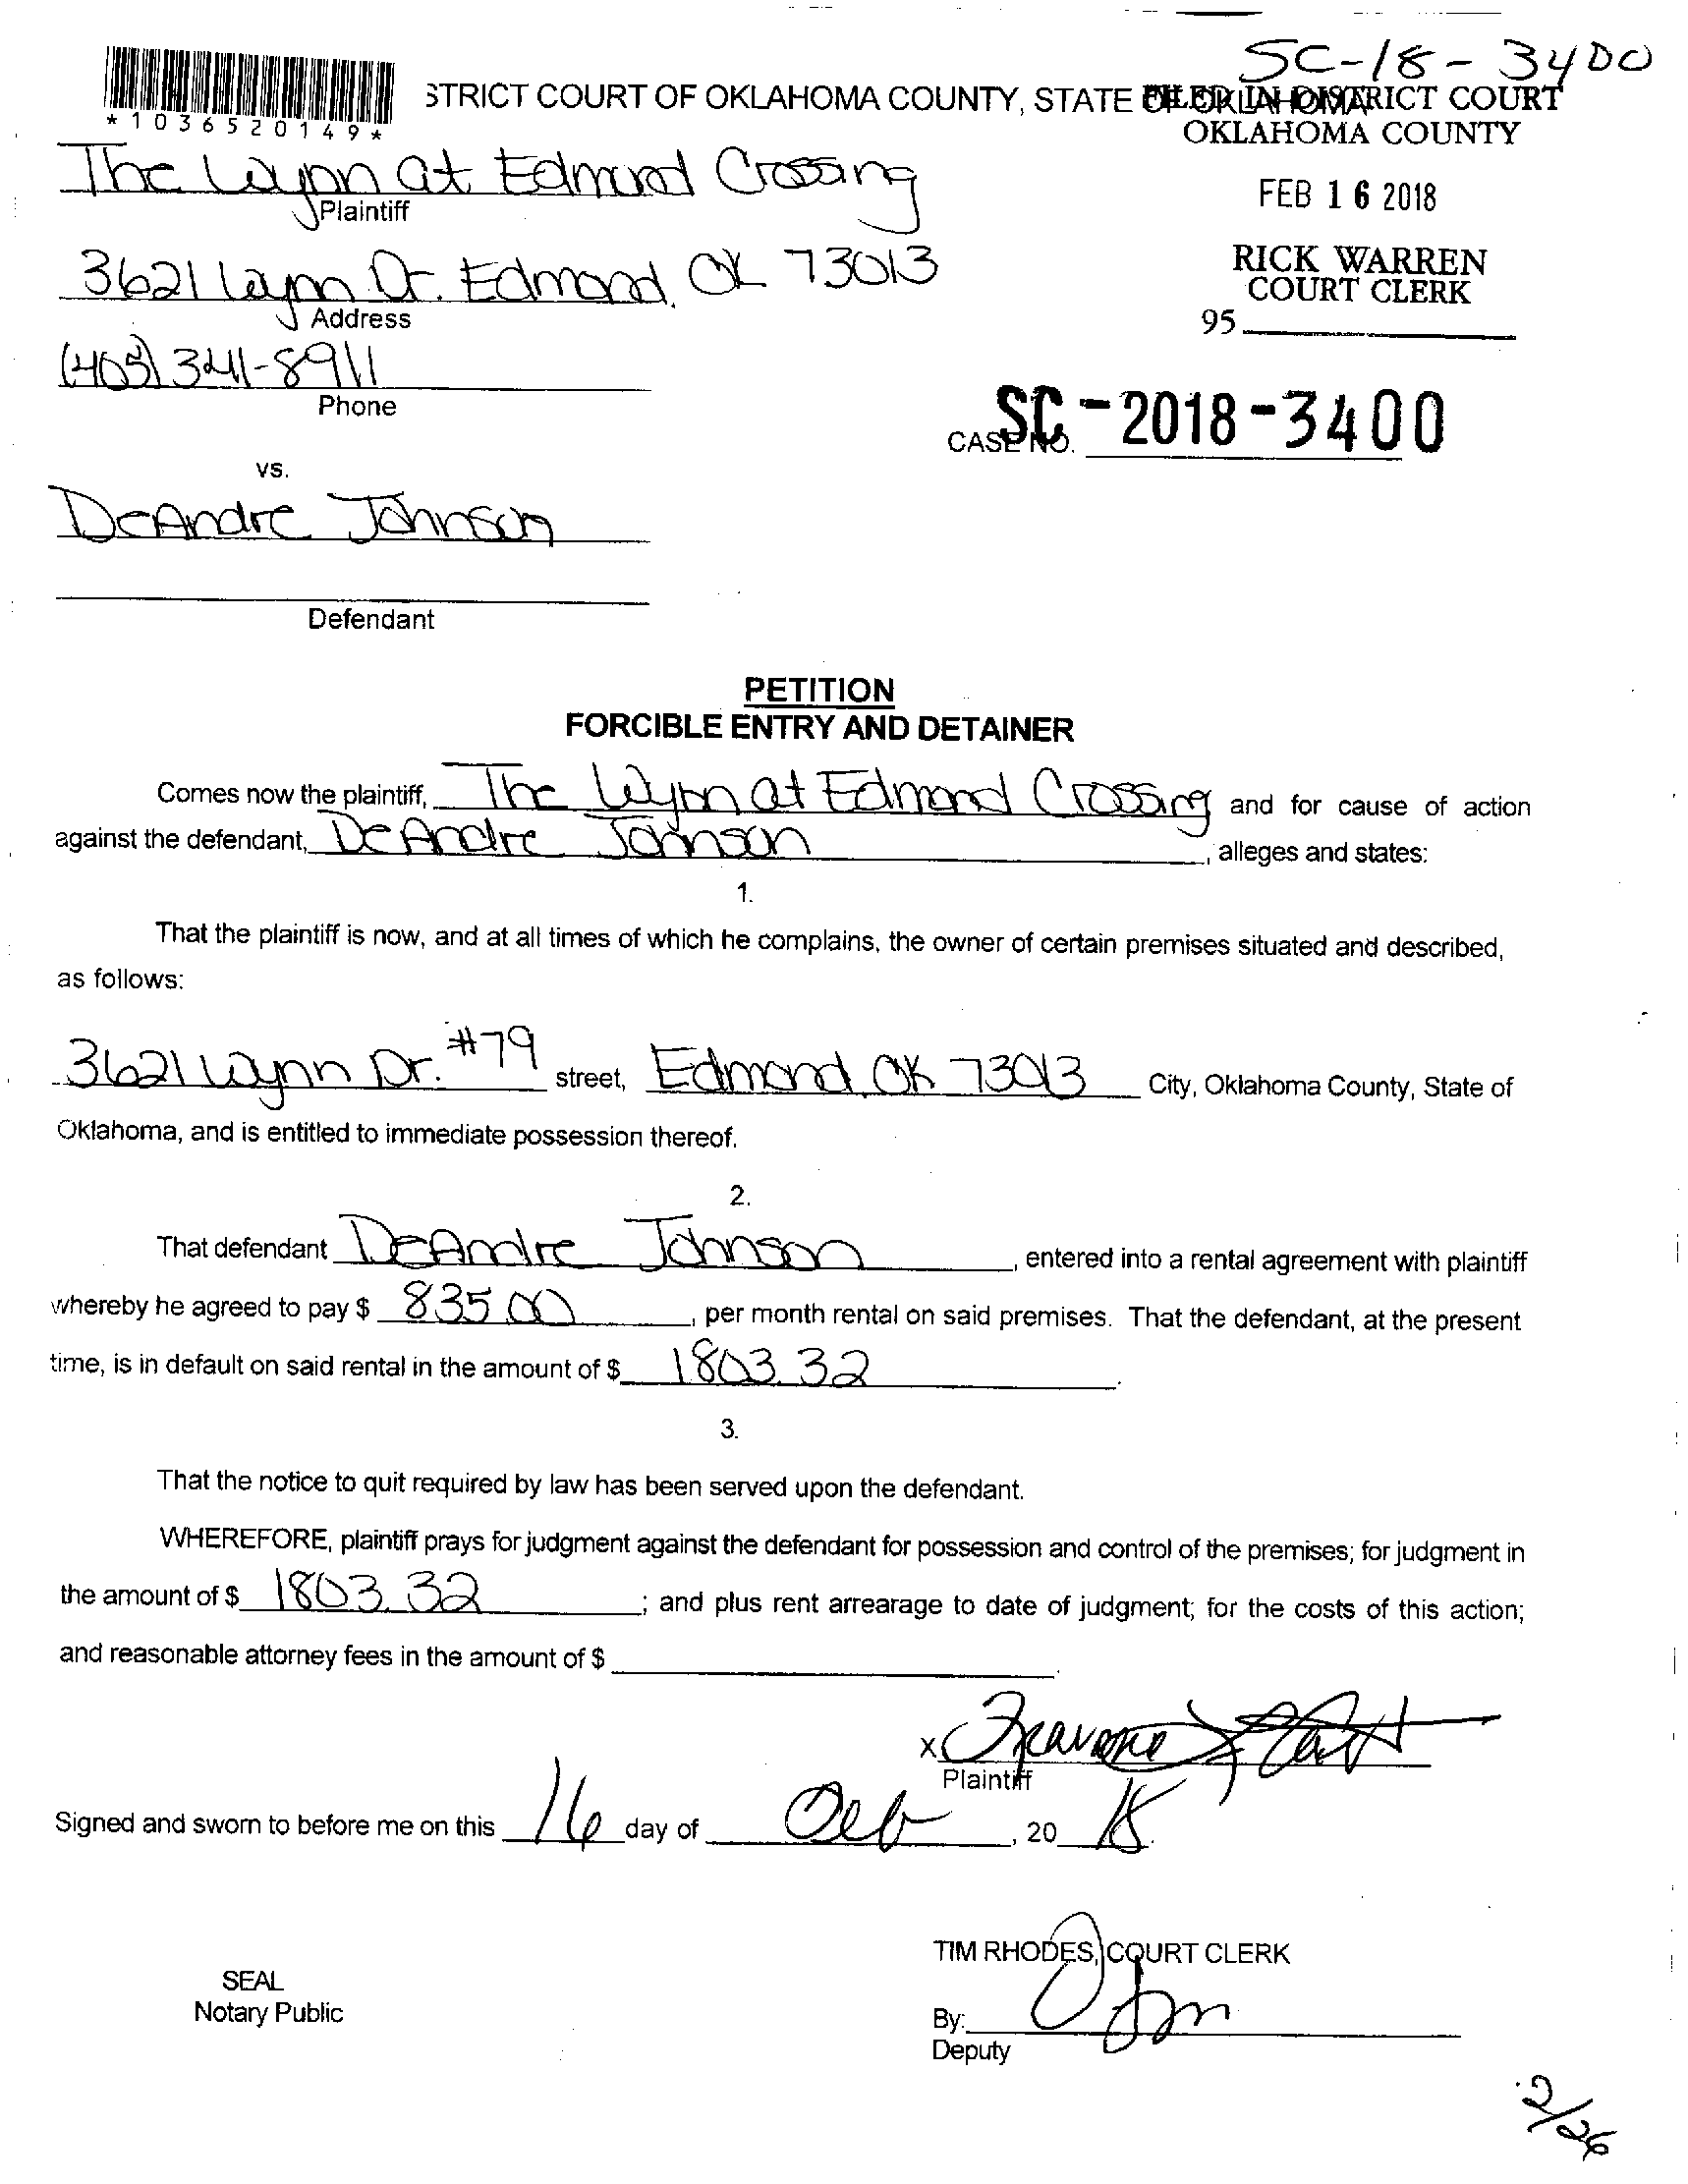 SC-18-3400
STRICT COURT OF OKLAHOMA COUNTY, STATE OF OKLAHOMA
FILED IN DISTRICT COURT
*1036520149*
OKLAHOMA COUNTY
The Wynn at Edmond Crossing
Plaintiff
FEB 16 2018
3621 Wynn Dr. Edmond, OK 73013
Address
RICK WARREN
COURT CLERK
95
(405) 341-8911
Phone
CASE NO. SC-2018-3400
vs.
DeAndre Johnson
Defendant
PETITION
FORCIBLE ENTRY AND DETAINER
Comes now the plaintiff, The Wynn at Edmond Crossing and for cause of action
against the defendant, DeAndre Johnson, alleges and states:
1.
That the plaintiff is now, and at all times of which he complains, the owner of certain premises situated and described,
as follows:
3621 Wynn Dr. #79 street, Edmond, OK 73013 City, Oklahoma County, State of
Oklahoma, and is entitled to immediate possession thereof.
2.
That defendant DeAndre Johnson, entered into a rental agreement with plaintiff
whereby he agreed to pay $ 835.00, per month rental on said premises. That the defendant, at the present
time, is in default on said rental in the amount of $ 1803.32.
3.
That the notice to quit required by law has been served upon the defendant.
WHEREFORE, plaintiff prays for judgment against the defendant for possession and control of the premises; for judgment in
the amount of $ 1803.32; and plus rent arrearage to date of judgment; for the costs of this action;
and reasonable attorney fees in the amount of $
x
Plaintiff
Signed and sworn to before me on this 16 day of Feb, 20 18.
TIM RHODES, COURT CLERK
SEAL
Notary Public
By:
Deputy
2/26